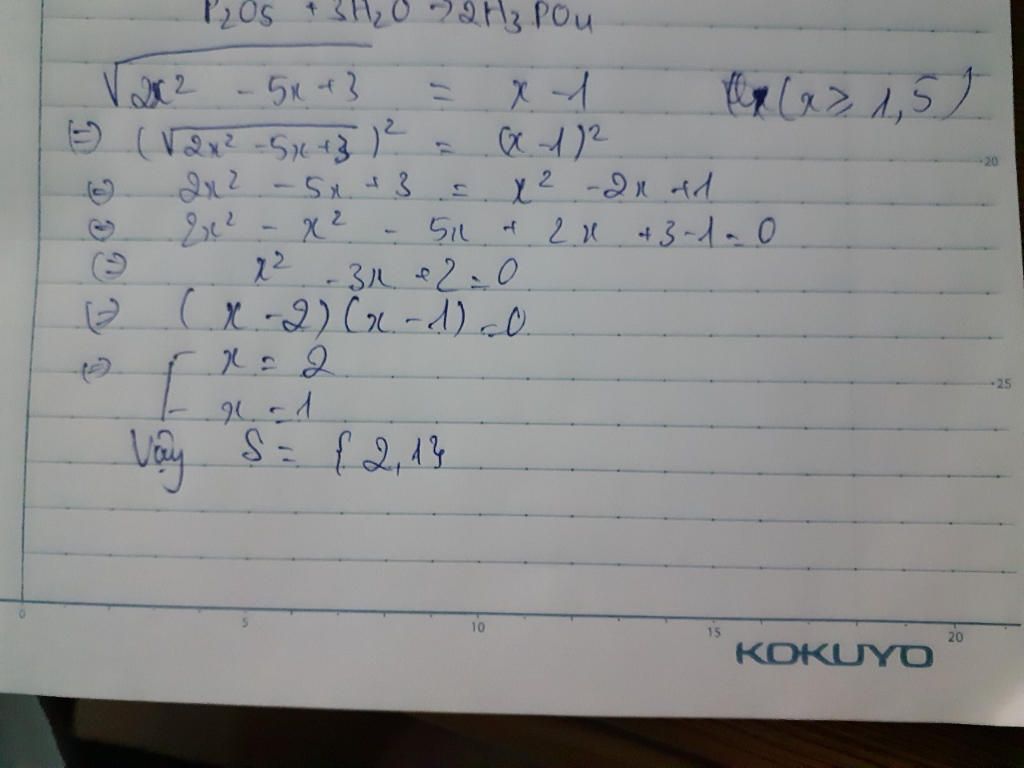 P₂O₅ + 3H₂O → 2H₃PO₄
√(2x² - 5x + 3) = x - 1 (x ⩾ 1,5)
⇔ (√(2x² - 5x + 3))² = (x - 1)²
⇔ 2x² - 5x + 3 = x² - 2x + 1
⇔ 2x² - x² - 5x + 2x + 3 - 1 = 0
⇔ x² - 3x + 2 = 0
⇔ (x - 2)(x - 1) = 0
⇔ [ x = 2
x = 1
Vậy S = {2, 1}
0 5 10 15 20
20
25
KOKUYO